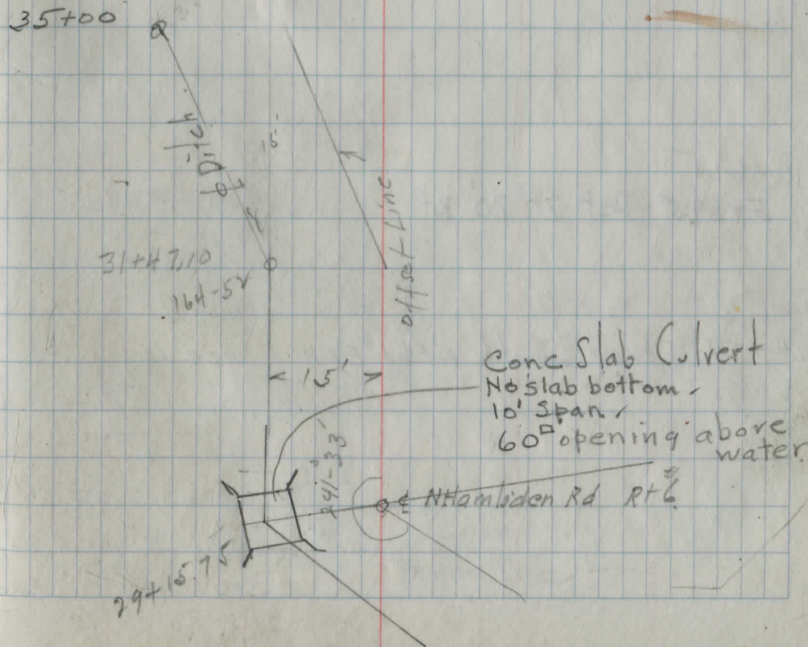 35+00
℄ Ditch
15
31+47.10
164-52
offset Line
15'
Conc Slab Culvert
No slab bottom.
10' Span,
60□' opening above
water
241°-33'
℄ N Hambden Rd Rt 6
29+15.75